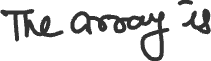 The array is